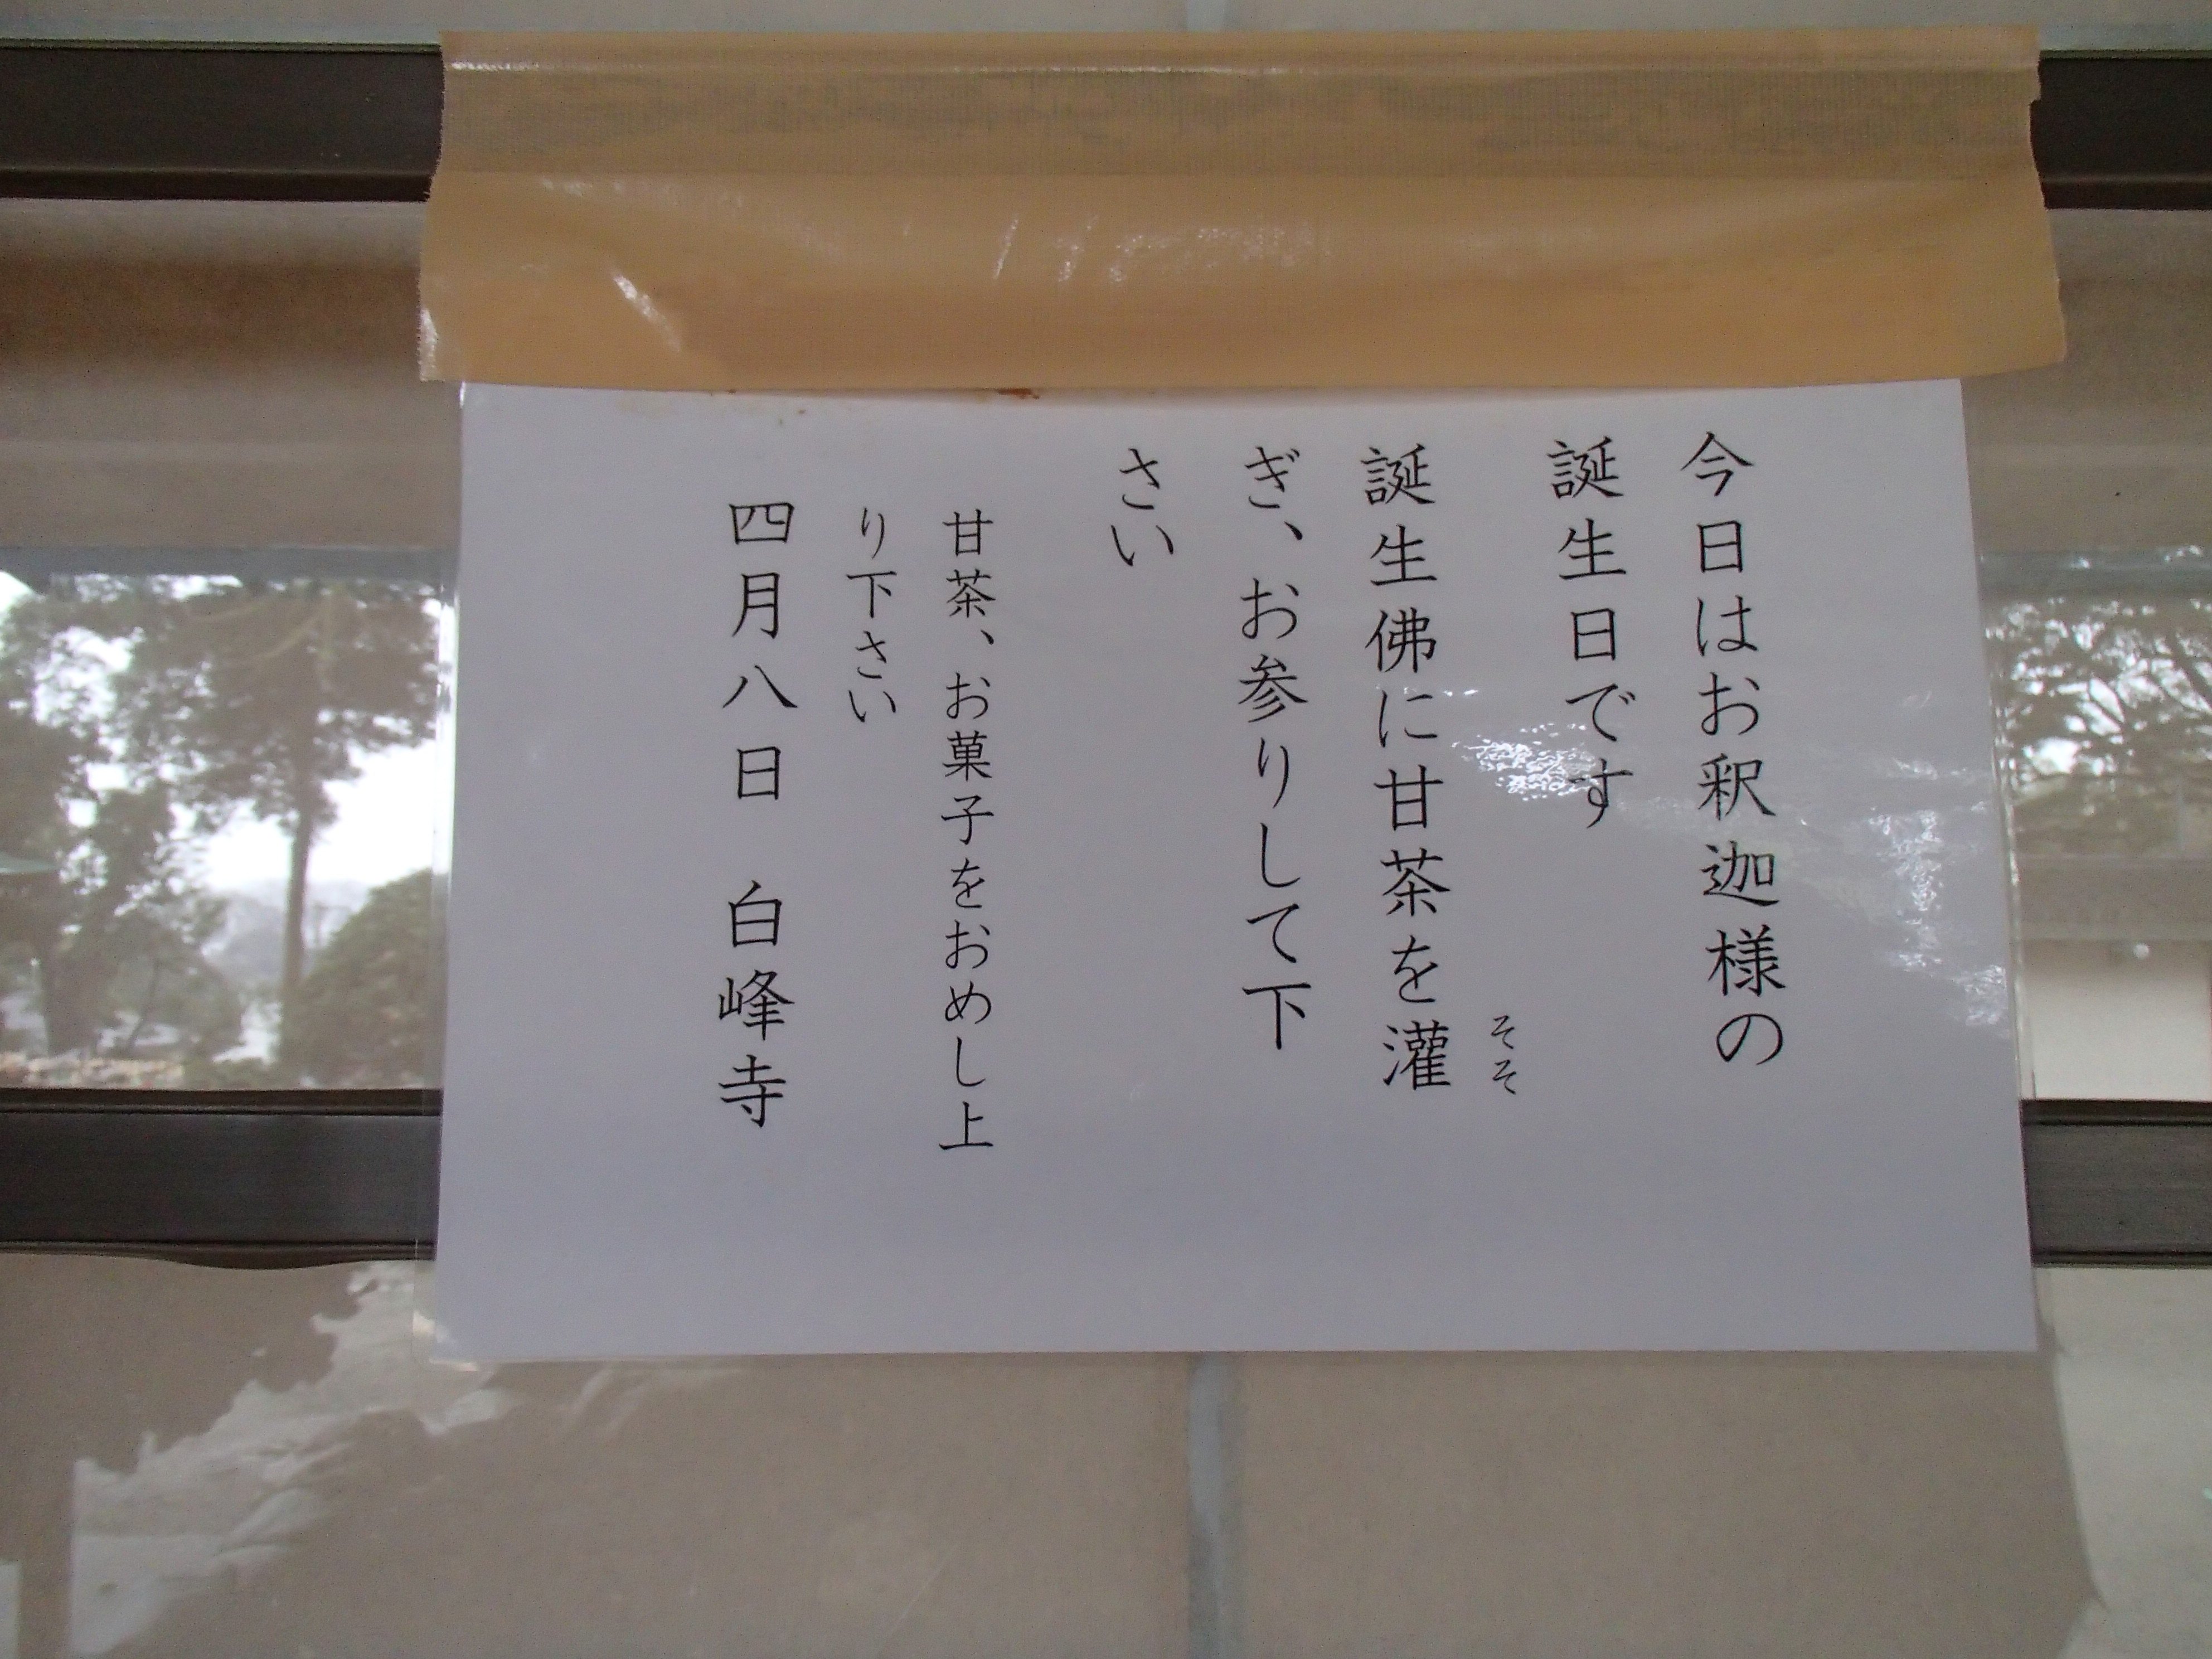 今日はお釈迦様の
誕生日です
誕生佛に甘茶を灌
そそ
ぎ、お参りして下
さい
甘茶、お菓子をおめし上
り下さい
四月八日　白峰寺